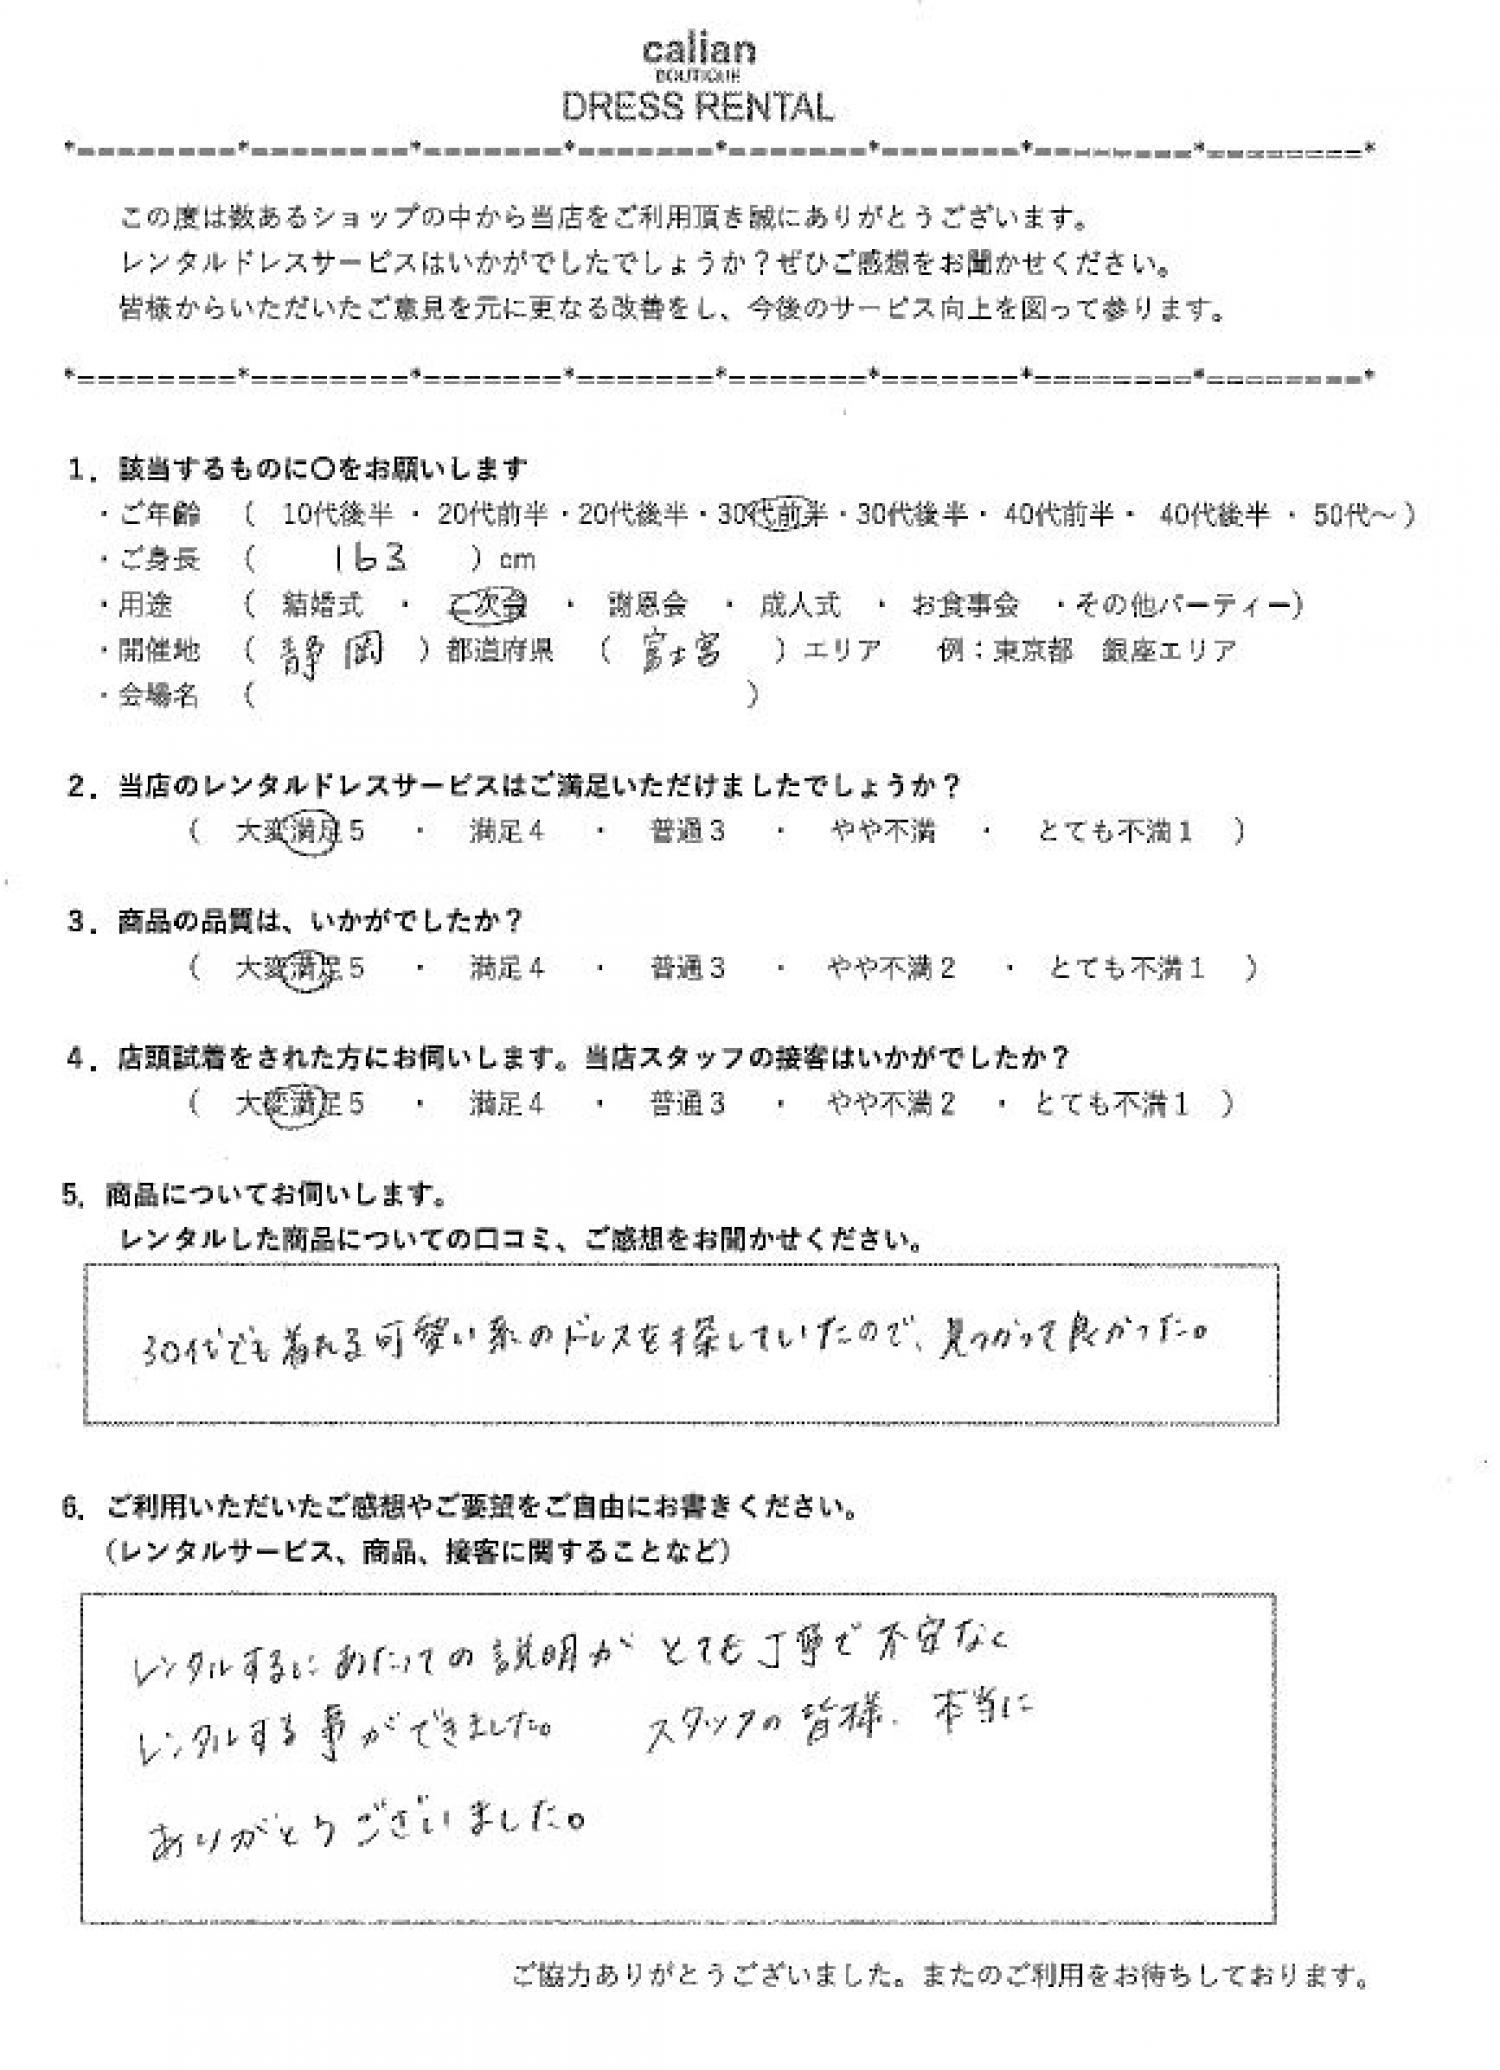 calian
BOUTIQUE
DRESS RENTAL
*========*========*=======*=======*=======*=======*========*========*
この度は数あるショップの中から当店をご利用頂き誠にありがとうございます。
レンタルドレスサービスはいかがでしたでしょうか？ぜひご感想をお聞かせください。
皆様からいただいたご意見を元に更なる改善をし、今後のサービス向上を図って参ります。
*========*========*=======*=======*=======*=======*========*========*
1．該当するものに〇をお願いします
・ご年齢 （ 10代後半 ・ 20代前半・20代後半・30代前半・30代後半・ 40代前半・ 40代後半 ・ 50代～）
・ご身長 （ 163 ）cm
・用途 （ 結婚式 ・ 二次会 ・ 謝恩会 ・ 成人式 ・ お食事会 ・その他パーティー）
・開催地 （ 静岡 ）都道府県 （ 富士宮 ）エリア 例：東京都 銀座エリア
・会場名 （ ）
2．当店のレンタルドレスサービスはご満足いただけましたでしょうか？
（ 大変満足5 ・ 満足4 ・ 普通3 ・ やや不満 ・ とても不満1 ）
3．商品の品質は、いかがでしたか？
（ 大変満足5 ・ 満足4 ・ 普通3 ・ やや不満2 ・ とても不満1 ）
4．店頭試着をされた方にお伺いします。当店スタッフの接客はいかがでしたか？
（ 大変満足5 ・ 満足4 ・ 普通3 ・ やや不満2 ・ とても不満1 ）
5．商品についてお伺いします。
レンタルした商品についての口コミ、ご感想をお聞かせください。
30代でも着れる可愛い系のドレスを探していたので、見つかって良かった。
6．ご利用いただいたご感想やご要望をご自由にお書きください。
（レンタルサービス、商品、接客に関することなど）
レンタルするにあたっての説明がとても丁寧で不安なく
レンタルする事ができました。 スタッフの皆様、本当に
ありがとうございました。
ご協力ありがとうございました。またのご利用をお待ちしております。